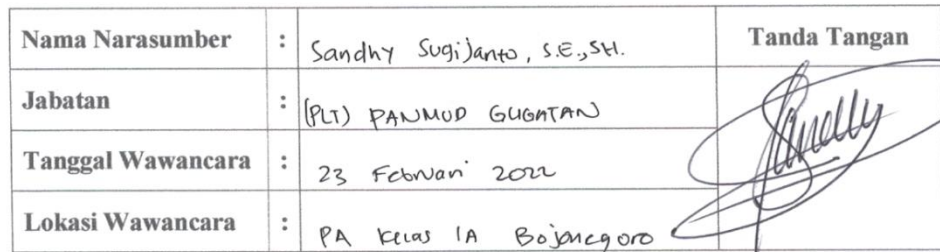 Nama Narasumber : Sandhy Sugijanto, S.E.,SH. Tanda Tangan
Jabatan : (PLT) PANMUD GUGATAN
Tanggal Wawancara : 23 Februari 2022
Lokasi Wawancara : PA Kelas 1A Bojonegoro
Sandhy